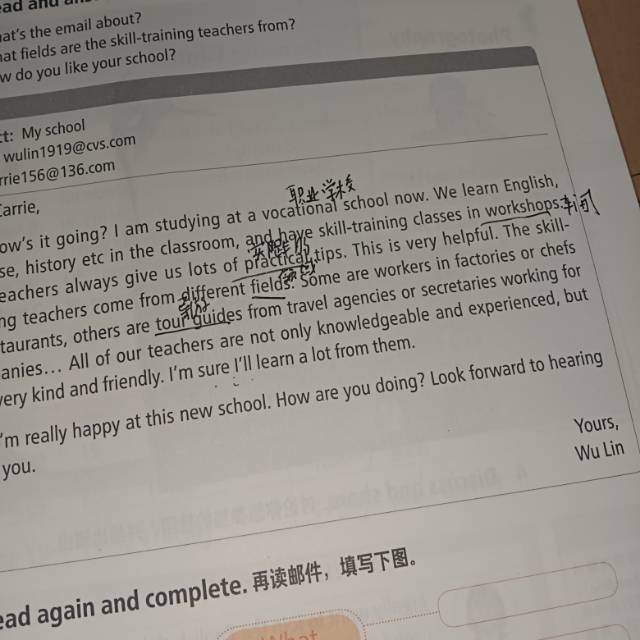 ead and
at's the email about?
at fields are the skill-training teachers from?
w do you like your school?
ct: My school
wulin1919@cvs.com
rrie156@136.com
Carrie,
职业学校
ow's it going? I am studying at a vocational school now. We learn English,
se, history etc in the classroom, and have skill-training classes in workshops.
车间
eachers always give us lots of practical tips. This is very helpful. The skill-
ng teachers come from different fields. Some are workers in factories or chefs
taurants, others are tour guides from travel agencies or secretaries working for
anies… All of our teachers are not only knowledgeable and experienced, but
very kind and friendly. I'm sure I'll learn a lot from them.
'm really happy at this new school. How are you doing? Look forward to hearing
you.
Yours,
Wu Lin
ead again and complete. 再读邮件，填写下图。
What